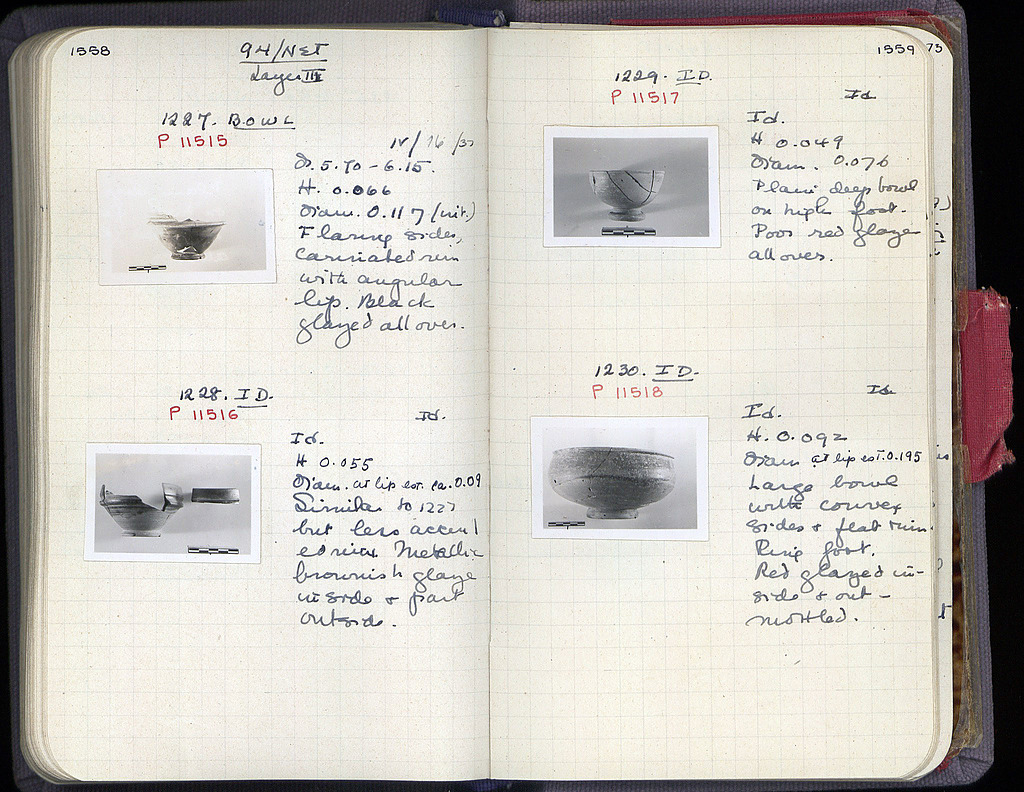 1558
94/NET
Layer III
1227. BOWL
P 11515
IV/16/37
D. 5.70 - 6.15.
H. 0.066
Diam. 0.117 (rit.)
Flaring sides,
carinated rim
with angular
lip. Black
glazed all over.
1228. ID.
P 11516
Id.
Id.
H 0.055
Diam. at lip est. ca. 0.09
Similar to 1227
but less accent
ed rim. Metallic
brownish glaze
inside & part
outside.
1559
75
1229. ID.
P 11517
Id
Id.
H 0.049
Diam. 0.076
Plain deep bowl
on high foot.
Poor red glaze
all over.
1230. ID.
P 11518
Id
Id.
H. 0.092
Diam at lip est. 0.195
Large bowl
with convex
sides & flat rim.
Ring foot.
Red glazed in-
side & out -
mottled.